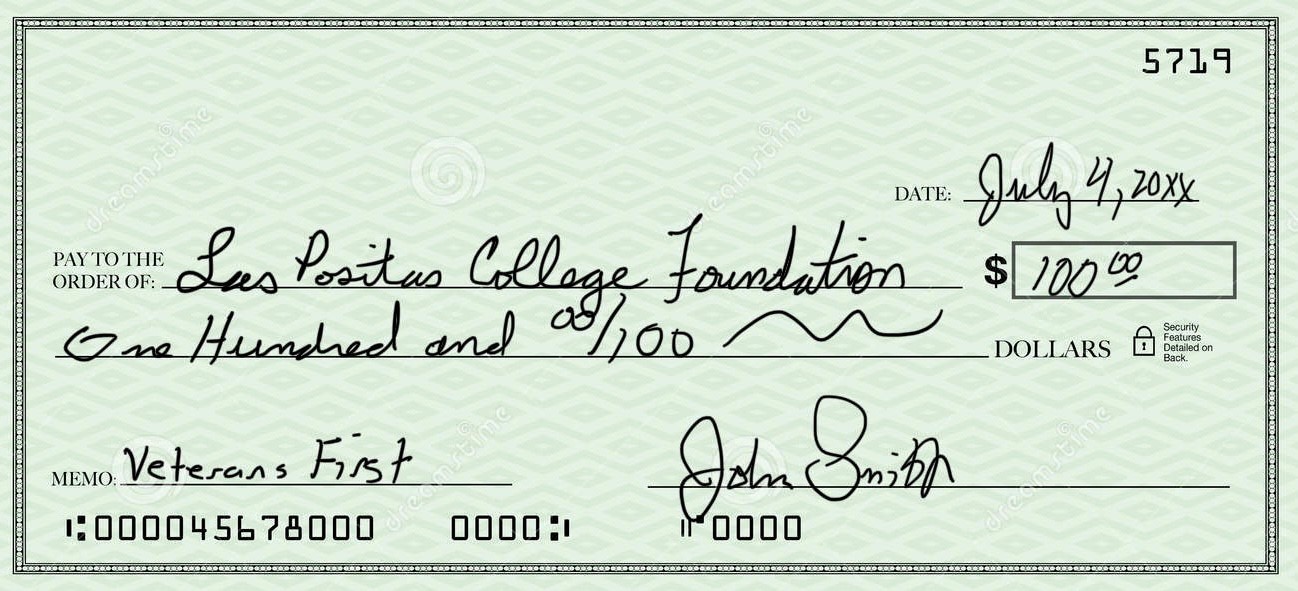 5719
DATE: July 4, 20xx
PAY TO THE
ORDER OF: Las Positas College Foundation $ 100 00
One Hundred and 00/100 DOLLARS
Security
Features
Detailed on
Back.
MEMO: Veterans First John Smith
000045678000 0000 0000
dreamstime
dreamstime
dreamstime
dreamstime